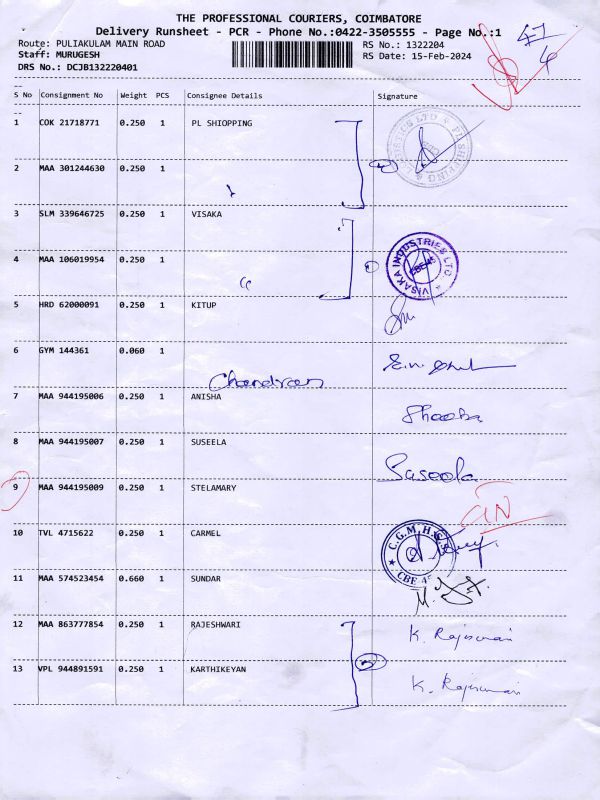 THE PROFESSIONAL COURIERS, COIMBATORE
Delivery Runsheet - PCR - Phone No.:0422-3505555 - Page No.:1
Route: PULIAKULAM MAIN ROAD
RS No.: 1322204
Staff: MURUGESH
RS Date: 15-Feb-2024
DRS No.: DCJB132220401
S No Consignment No Weight PCS Consignee Details Signature
1 COK 21718771 0.250 1 PL SHIOPPING
2 MAA 301244630 0.250 1
3 SLM 339646725 0.250 1 VISAKA
4 MAA 106019954 0.250 1
VISAKA INDUSTRIES LTD.
CBE-45
5 HRD 62000091 0.250 1 KITUP
6 GYM 144361 0.060 1
Chandran
7 MAA 944195006 0.250 1 ANISHA
Shoba
8 MAA 944195007 0.250 1 SUSEELA
Suseela
9 MAA 944195009 0.250 1 STELAMARY
10 TVL 4715622 0.250 1 CARMEL
C.G.M.H.S.S
CBE 45
11 MAA 574523454 0.660 1 SUNDAR
12 MAA 863777854 0.250 1 RAJESHWARI K. Rajeswari
13 VPL 944891591 0.250 1 KARTHIKEYAN K. Rajeswari